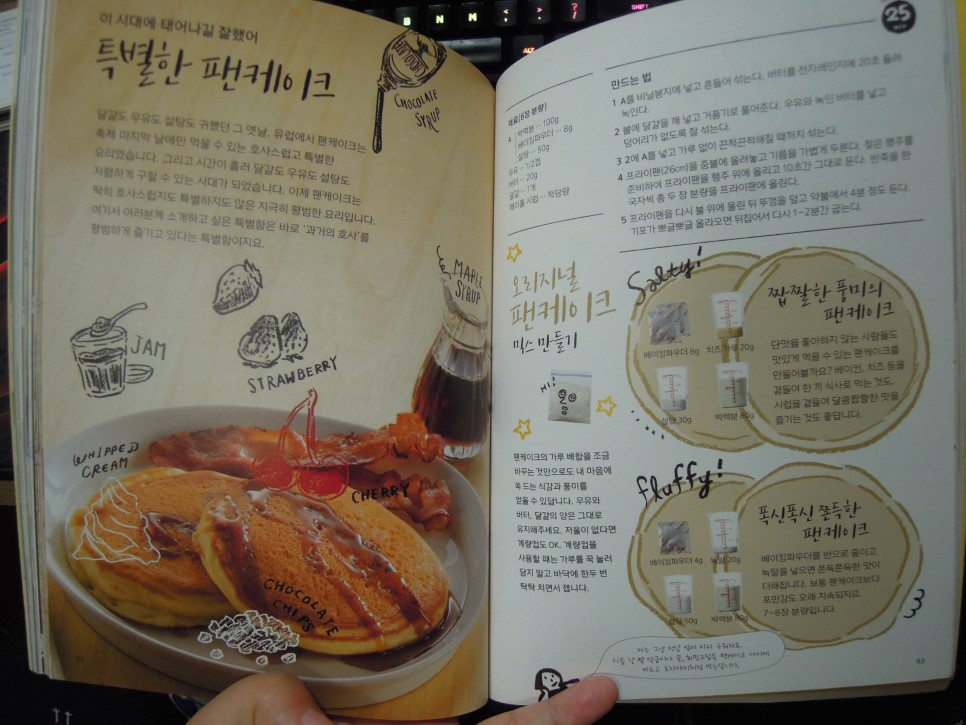 이 시대에 태어나길 잘했어
특별한 팬케이크
달걀도 우유도 설탕도 귀했던 그 옛날. 유럽에서 팬케이크는
축제 마지막 날에만 먹을 수 있는 호사스럽고 특별한
요리였습니다. 그리고 시간이 흘러 달걀도 우유도 설탕도
저렴하게 구할 수 있는 시대가 되었습니다. 이제 팬케이크는
딱히 호사스럽지도 특별하지도 않은 지극히 평범한 요리입니다.
여기서 여러분께 소개하고 싶은 특별함은 바로 '과거의 호사'를
평범하게 즐기고 있다는 특별함이지요.
CHOCOLATE
SYRUP
MAPLE
SYRUP
JAM
STRAWBERRY
WHIPPED
CREAM
CHERRY
CHOCOLATE
CHIPS
25
재료(6장 분량)
A
박력분 ··· 100g
베이킹파우더 ··· 8g
설탕 ··· 50g
우유 ··· 1/2컵
버터 ··· 20g
달걀 ··· 1개
메이플 시럽 ··· 적당량
만드는 법
1 A를 비닐봉지에 넣고 흔들어 섞는다. 버터를 전자레인지에 20초 돌려
녹인다.
2 볼에 달걀을 깨 넣고 거품기로 풀어준다. 우유와 녹인 버터를 넣고
덩어리가 없도록 잘 섞는다.
3 2에 A를 넣고 가루 없이 끈적끈적해질 때까지 섞는다.
4 프라이팬(26cm)을 중불에 올려놓고 기름을 가볍게 두른다. 젖은 행주를
준비하여 프라이팬을 행주 위에 올리고 10초간 그대로 둔다. 반죽을 한
국자씩 총 두 장 분량을 프라이팬에 올린다.
5 프라이팬을 다시 불 위에 올린 뒤 뚜껑을 덮고 약불에서 4분 정도 둔다.
기포가 뽀글뽀글 올라오면 뒤집어서 다시 1~2분간 굽는다.
오리지널
팬케이크
믹스 만들기
HI!
팬케이크의 가루 배합을 조금
바꾸는 것만으로도 내 마음에
쏙 드는 식감과 풍미를
얻을 수 있답니다. 우유와
버터, 달걀의 양은 그대로
유지해주세요. 저울이 없다면
계량컵도 OK. 계량컵을
사용할 때는 가루를 꾹 눌러
담지 말고 바닥에 한두 번
탁탁 치면서 잽니다.
Salty!
베이킹파우더 8g
치즈 가루 20g
설탕 30g
박력분 80g
짭짤한 풍미의
팬케이크
단맛을 좋아하지 않는 사람들도
맛있게 먹을 수 있는 팬케이크를
만들어볼까요? 베이컨, 치즈 등을
곁들여 한 끼 식사로 먹는 것도,
시럽을 곁들여 달콤짭짤한 맛을
즐기는 것도 좋답니다.
fluffy!
베이킹파우더 4g
녹말 20g
설탕 50g
박력분 80g
폭신폭신 쫀득한
팬케이크
베이킹파우더를 반으로 줄이고
녹말을 넣으면 쫀득쫀득한 맛이
더해집니다. 보통 팬케이크보다
포만감도 오래 지속되지요.
7~8장 분량입니다.
93
B
N
M
SHIFT
ALT